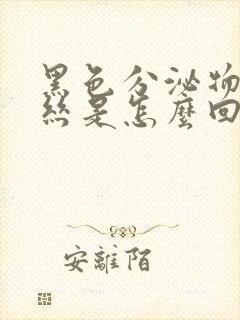 黑色分泌物
絲是怎麼回
安離陌